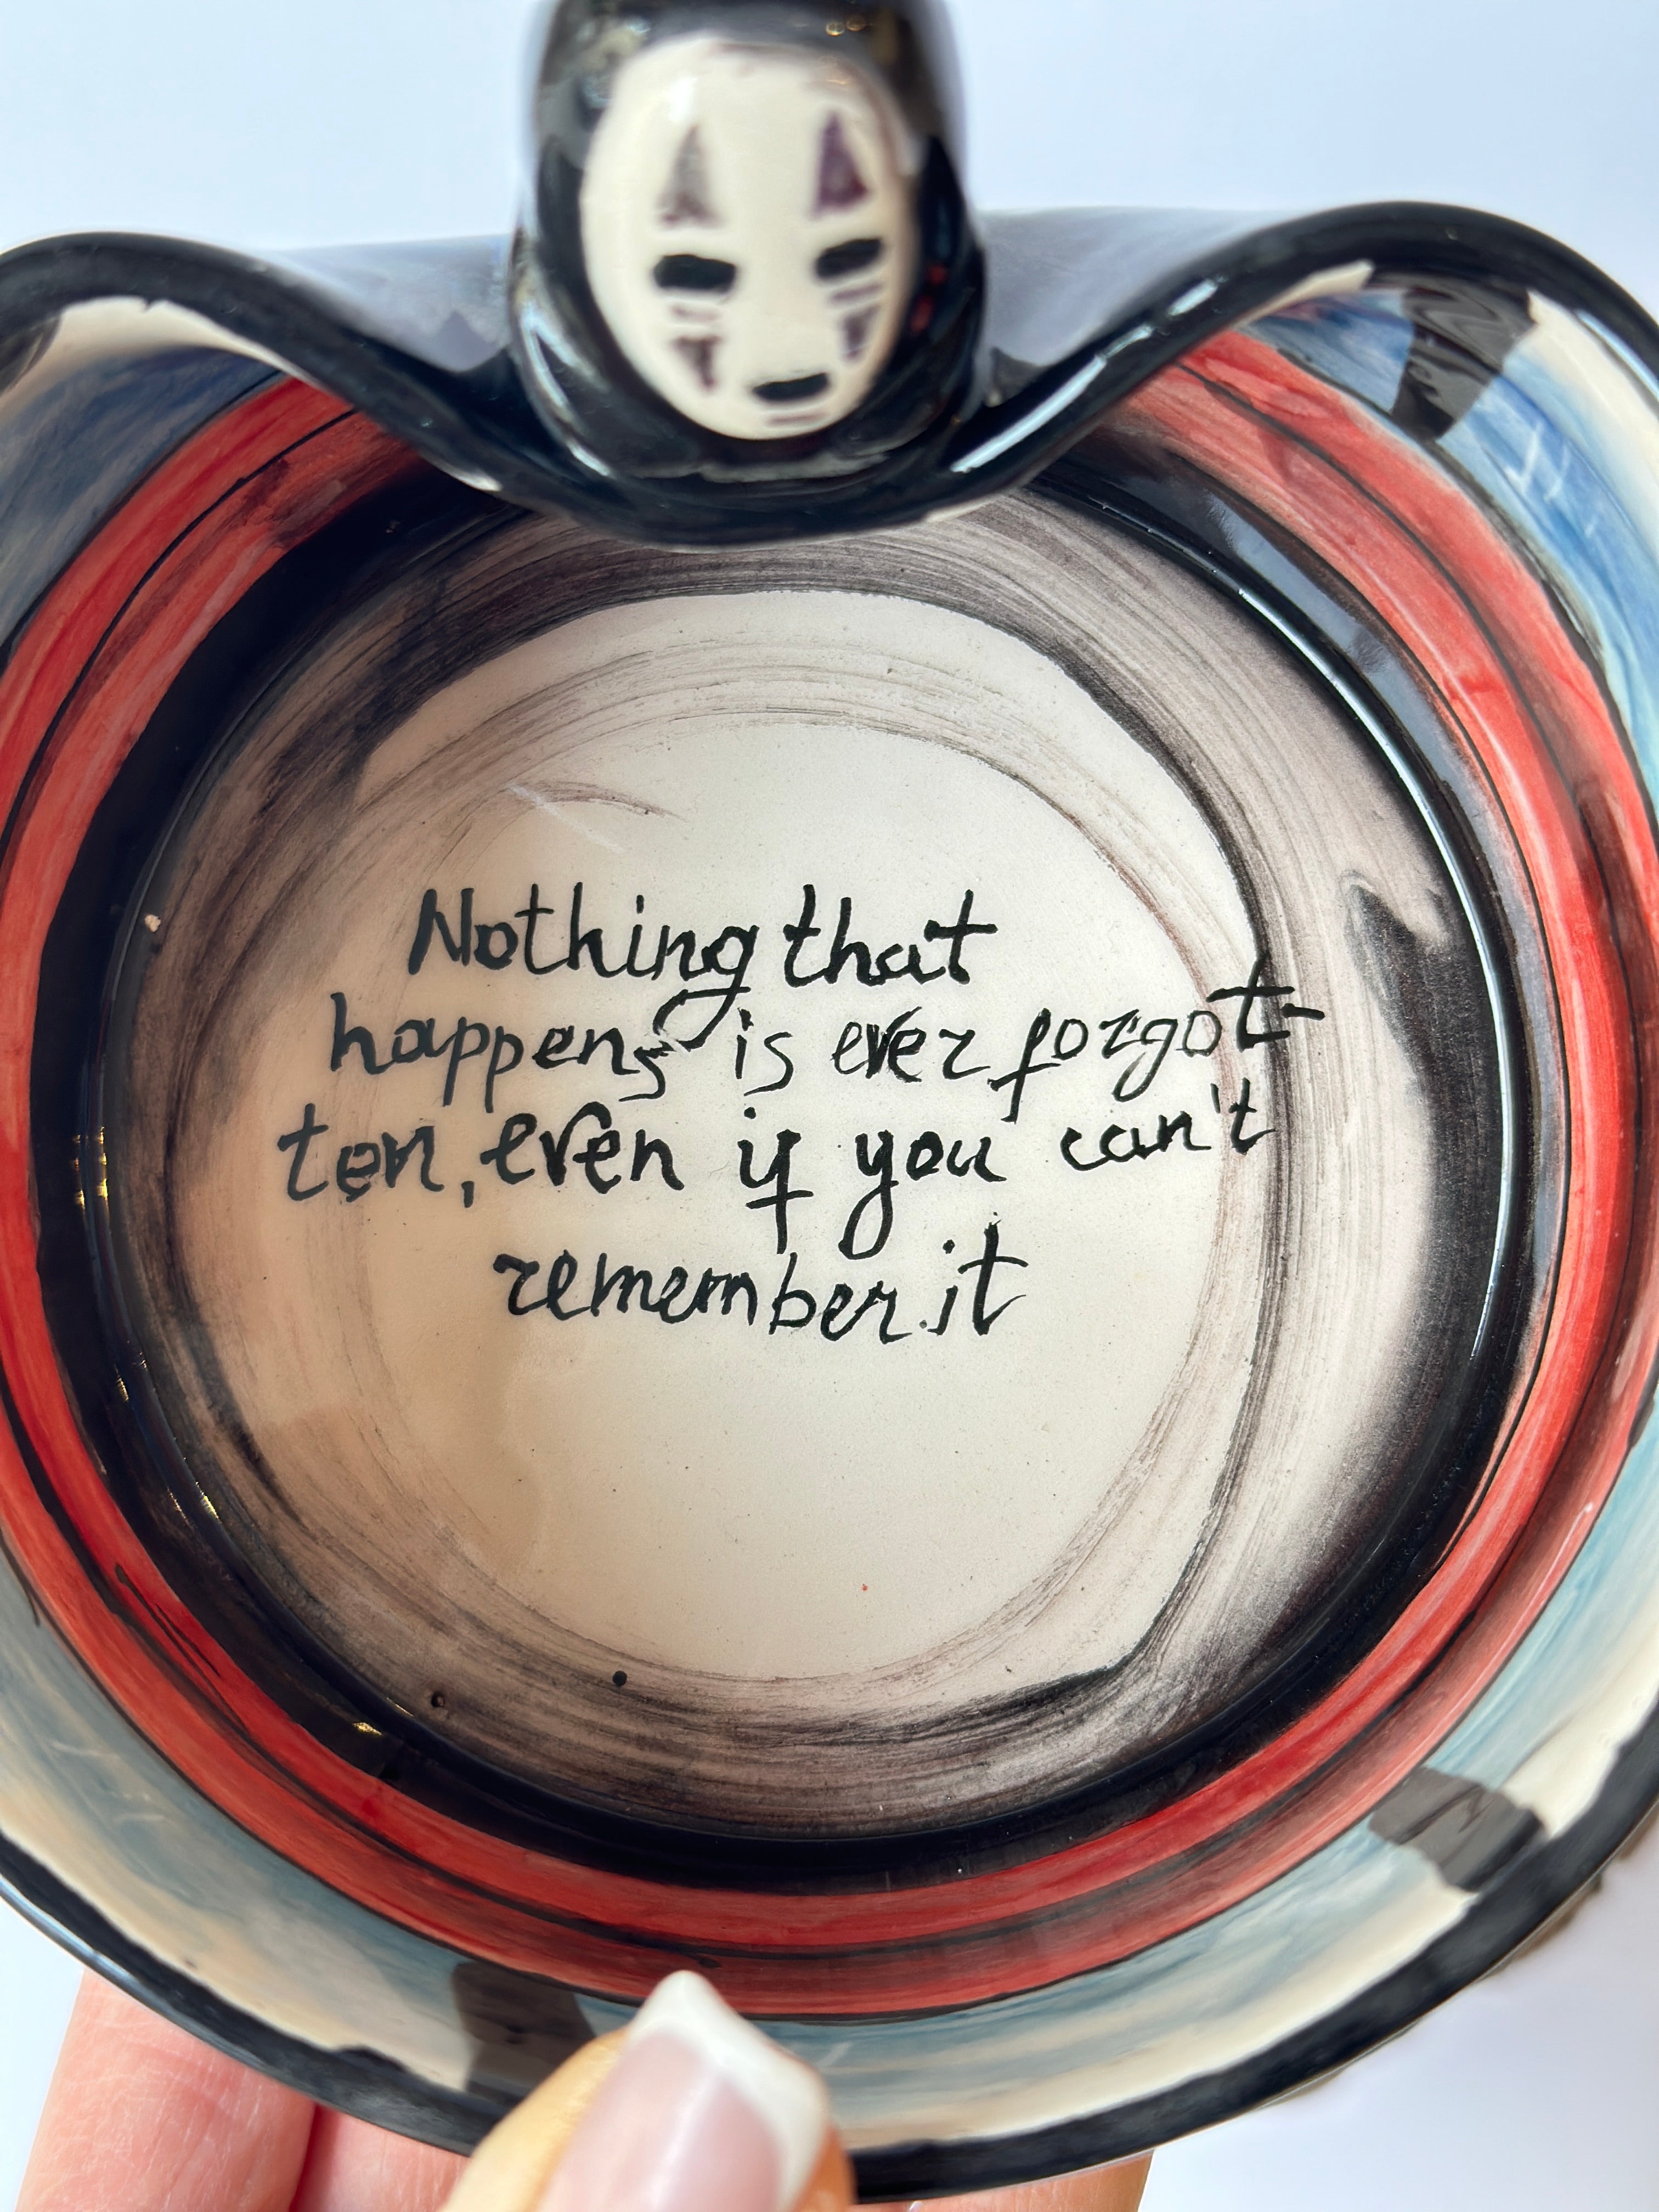 Nothing that
happens is ever forgot-
ten, even if you can't
remember it